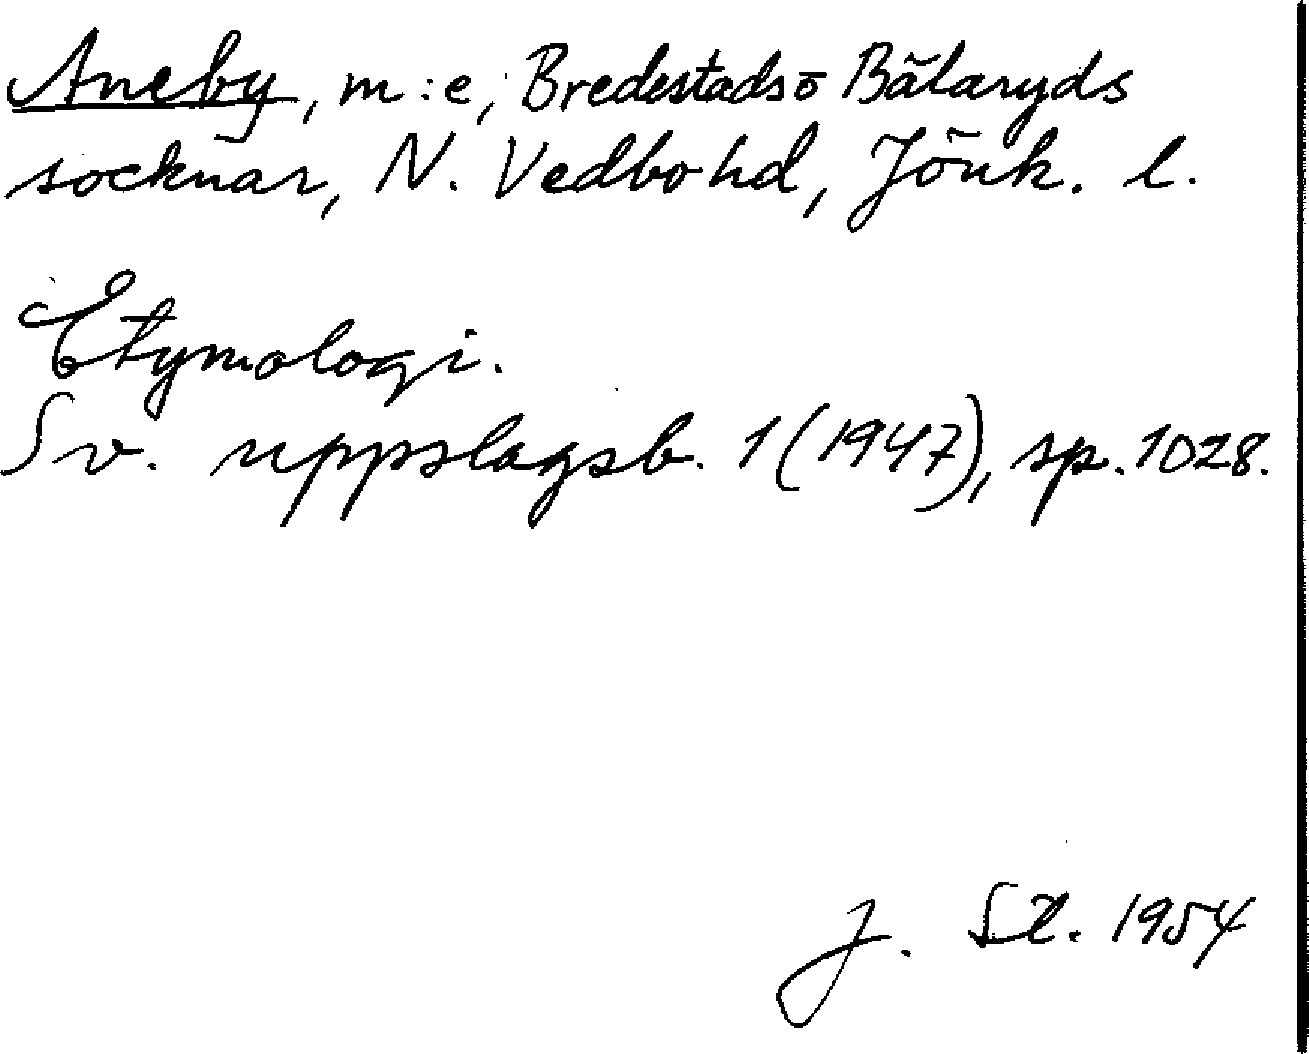 Aneby, m:e, Bredestads o Bälaryds
socknar, N. Vedbo hd, Jönk. l.
Etymologi.
Sv. uppslagsb. 1 (1947), sp. 1028.
J. 1954